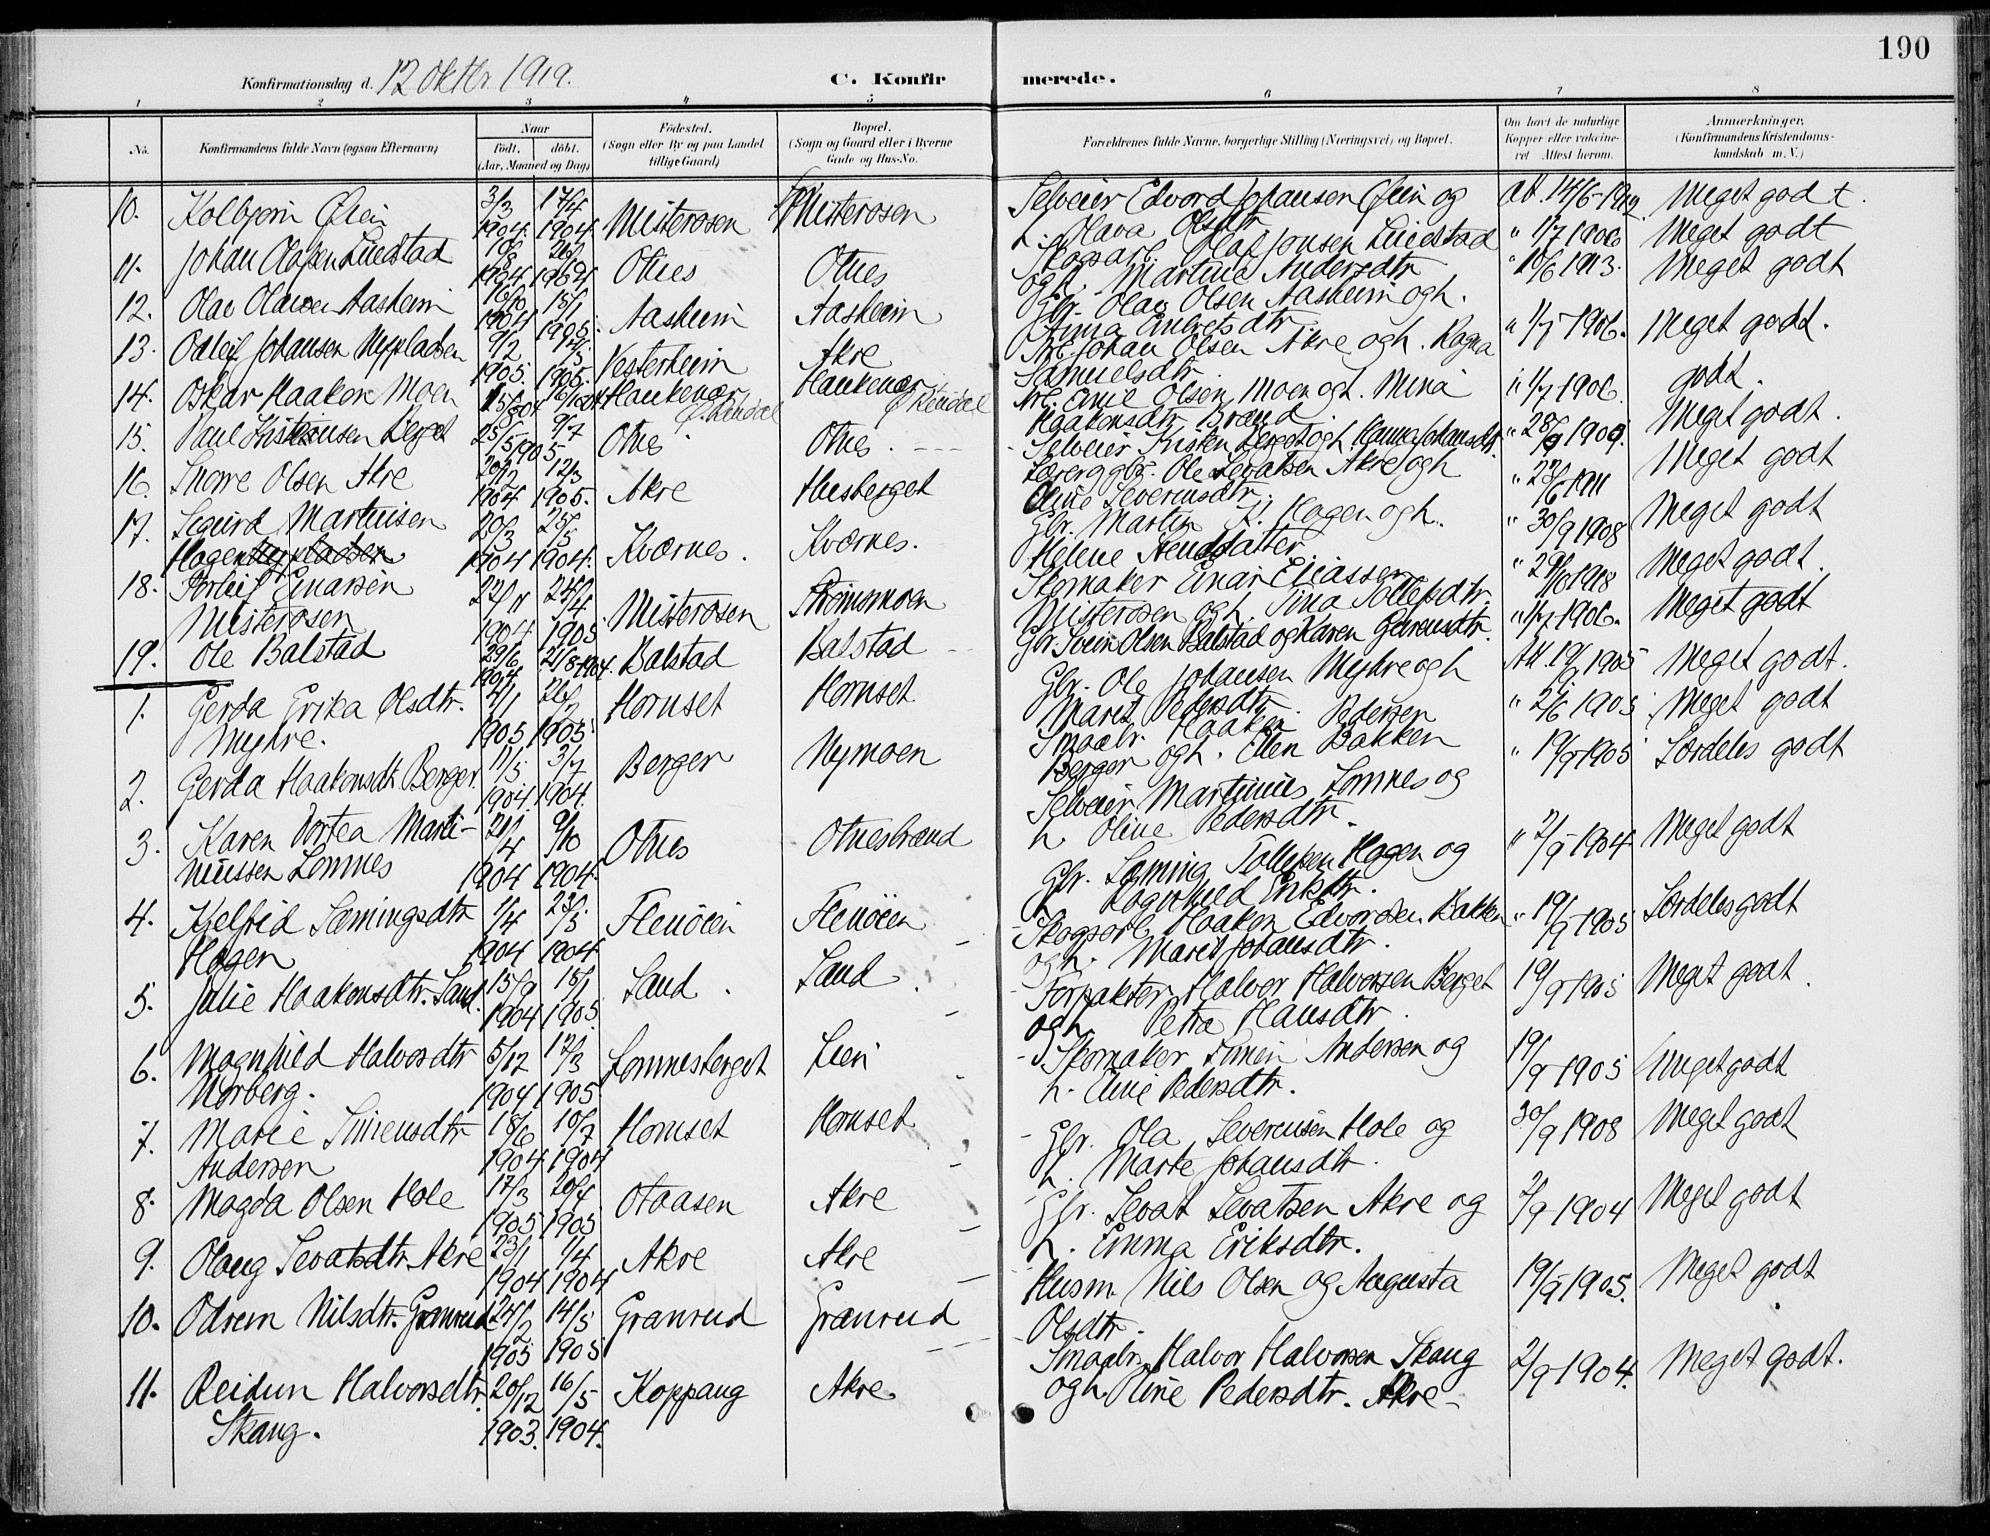 190
Konfirmationsdag d. 12 oktbr 1919.
C. Konfirmerede.
1 2 3 4 5 6 7 8
No. Konfirmandens fulde Navn (ogsaa Efternavn) Naar født. døbt. (Aar, Maaned og Dag) Fødested. (Sogn eller By og paa Landet tillige Gaard) Bopæl. (Sogn og Gaard eller i Byerne Gade og Hus-No. Forældrenes fulde Navne, borgerlige Stilling (Næringsvei) og Bopæl. Om havt de naturlige Kopper eller vaccineret Attest herom. Anmærkninger. (Konfirmandens Kristendomskundskab m. V.)
10. Kolbjørn Øien 3/3 1904. 17/4 1904. Misterosen Misterosen Selveier Edvord Johansen Øien og h. Olava Olsdtr 14/6-1912. Meget godt.
11. Johan Olafsen Luestad 1904 1904 Otnes Otnes Skogsarb. Olaf Jonsen Luestad og h. Martine Andersdtr " 1/7 1906 Meget godt
12. Olav Olavsen Aasheim 16/10 1904 15/1 1905. Aasheim Aasheim Gbr. Olav Olsen Aasheim og h. Anna Embretsdtr " 10/6 1913. Meget godt
13. Odleif Johansen Nypladsen 9/2 1905. 1905. Vesterheim Akre Arb. Johan Olsen Akre og h. Ragna Samuelsdtr. " 1/7 1906. Meget godt.
14. Oskar Haakon Moen Haukenær Ø. Rendal Haukenær Ø Rendal Arb. Emil Olsen Moen og h. Mina Haakonsdtr Brænd " 1/7 1906. godt.
15. Paul Kristiansen Berget 25/5 1905 9/7 Otnes Otnes. Selveier Kristen Berget og h. Hanna Johansdtr. " 28/9 1909. Meget godt.
16. Snorre Olsen Akre 20/12 1904 12/3 1905. Akre Husberget Lærer og gbr. Ole Sevatsen Akre og h Oline Severinsdtr. " 1911 Meget godt
17. Sigurd Martinsen Hagen 20/3 1904 25/5 1904. Kværnes. Kværnes. Gbr. Martin K. Hagen og h. Helene Stensdatter " 30/9 1908 Meget godt
18. Torleif Einarsen Misterosen 22/11 1904 24/4 1905 Misterosen Strømsmoen Skomaker Einar Eliassen Misterosen og h. Tina Tollefsdtr. " 29/10 1918 Meget godt.
19. Ole Balstad 29/6 1904 21/8-1904. Balstad Balstad Gbr Svein Olsen Balstad og Karen Gurensdtr. " 1/7-1906. Meget godt
1. Gerda Erika Olsdtr. Myhre. 4/1 1905 26/2 1905. Hornset Hornset Gbr. Ole Johansen Myhre og h Maret Pedersdtr. Att. 19/9 1905 Meget godt.
2. Gerda Haakonsdtr Berger. 11/5 1904. 3/7 1904. Berger Nymoen Smaabr. Haakon Pedersen Berger og h. Ellen Bakken " 2/6 1905 Meget godt
3. Karen Dortea Martinussen Lomnes 21/4 1904 9/10 1904. Otnes Otnesbrænd Selveier Martinius Lomnes og h Oline Pedersdtr. " 19/9 1905 Særdeles godt
4. Kjelfrid Sæmingsdtr Hagen 1/4 1904 23/5 1904. Flenøien Flenøien Gbr. Sæming Tollefsen Hagen og h Ragnhild Eriksdtr. " 2/9-1904 Meget godt
5. Julie Haakonsdtr. Sand. 15/9 1904 15/1 1905. Sand. Sand. Skogsarb. Haakon Edvardsen Bakken og h. Marit Johansdtr. " 19/9 1905 Særdeles godt
6. Magnhild Halvorsdtr Norberg. 5/12 1904 12/3 1905. Lomnesberget Lien Forpakter Halvor Halvorsen Berget og h Petra Hansdtr. 19/9 1905 Meget godt.
7. Marie Simensdtr Andersen 18/6 1904 10/7 1904 Hornset Hornset Skomaker Simen Andersen og h. Eline Pedersdtr. 19/9 1905 Meget godt
8. Magda Olsen Hole 17/3 1905 20/4 1905 Otaasen Akre Gbr. Ola Severinsen Hole og h. Marte Johansdtr. 30/9 1908 Meget godt
9. Olaug Sevatsdtr Akre 23/1 1904 1/4 1904 Akre Akre Gbr. Sevat Sevatsen Akre og h. Emma Eriksdtr. 2/9 1904 Meget godt
10. Odrun Nilsdtr. Granrud 24/2 1905 14/5 1905 Granrud Granrud Husm. Nils Olsen og Augusta Olsdtr. 19/9 1905. Meget godt
11. Reidun Halvorsdtr. Skaug. 20/12 1903. 16/5 1904. Koppang Akre Smaabr. Halvor Halvorsen Skaug og h Oline Pedersdtr. Akre 2/9 1904. Meget godt.